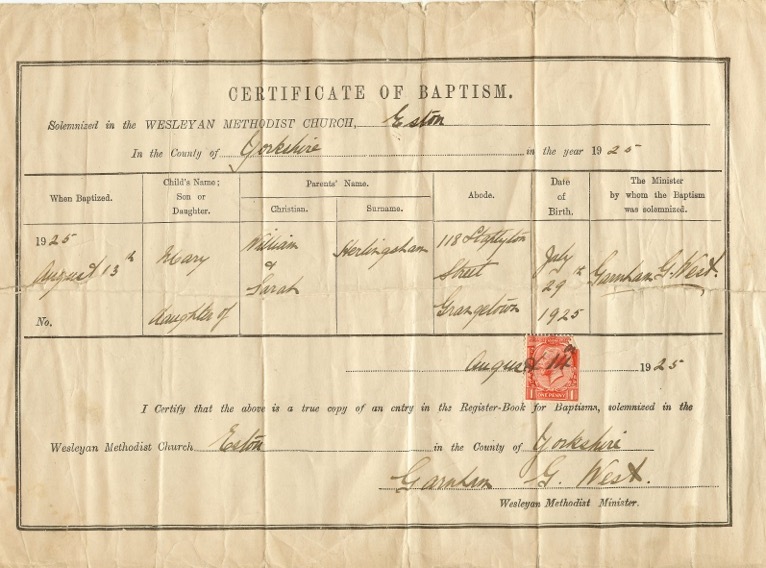 CERTIFICATE OF BAPTISM.
Solemnized in the WESLEYAN METHODIST CHURCH, Eston
In the County of Yorkshire in the year 1925
When Baptized.
Child's Name; Son or Daughter.
Parents' Name.
Christian.
Surname.
Abode.
Date of Birth.
The Minister by whom the Baptism was solemnized.
1925
August 13th
No.
Mary
daughter of
William
&
Sarah
Herlingshaw
118 Stapylton
Street
Grangetown
July
29th
1925
Garnham G. West.
August 14th 1925
ONE PENNY
I Certify that the above is a true copy of an entry in the Register-Book for Baptisms, solemnized in the
Wesleyan Methodist Church Eston in the County of Yorkshire
Garnham G. West.
Wesleyan Methodist Minister.